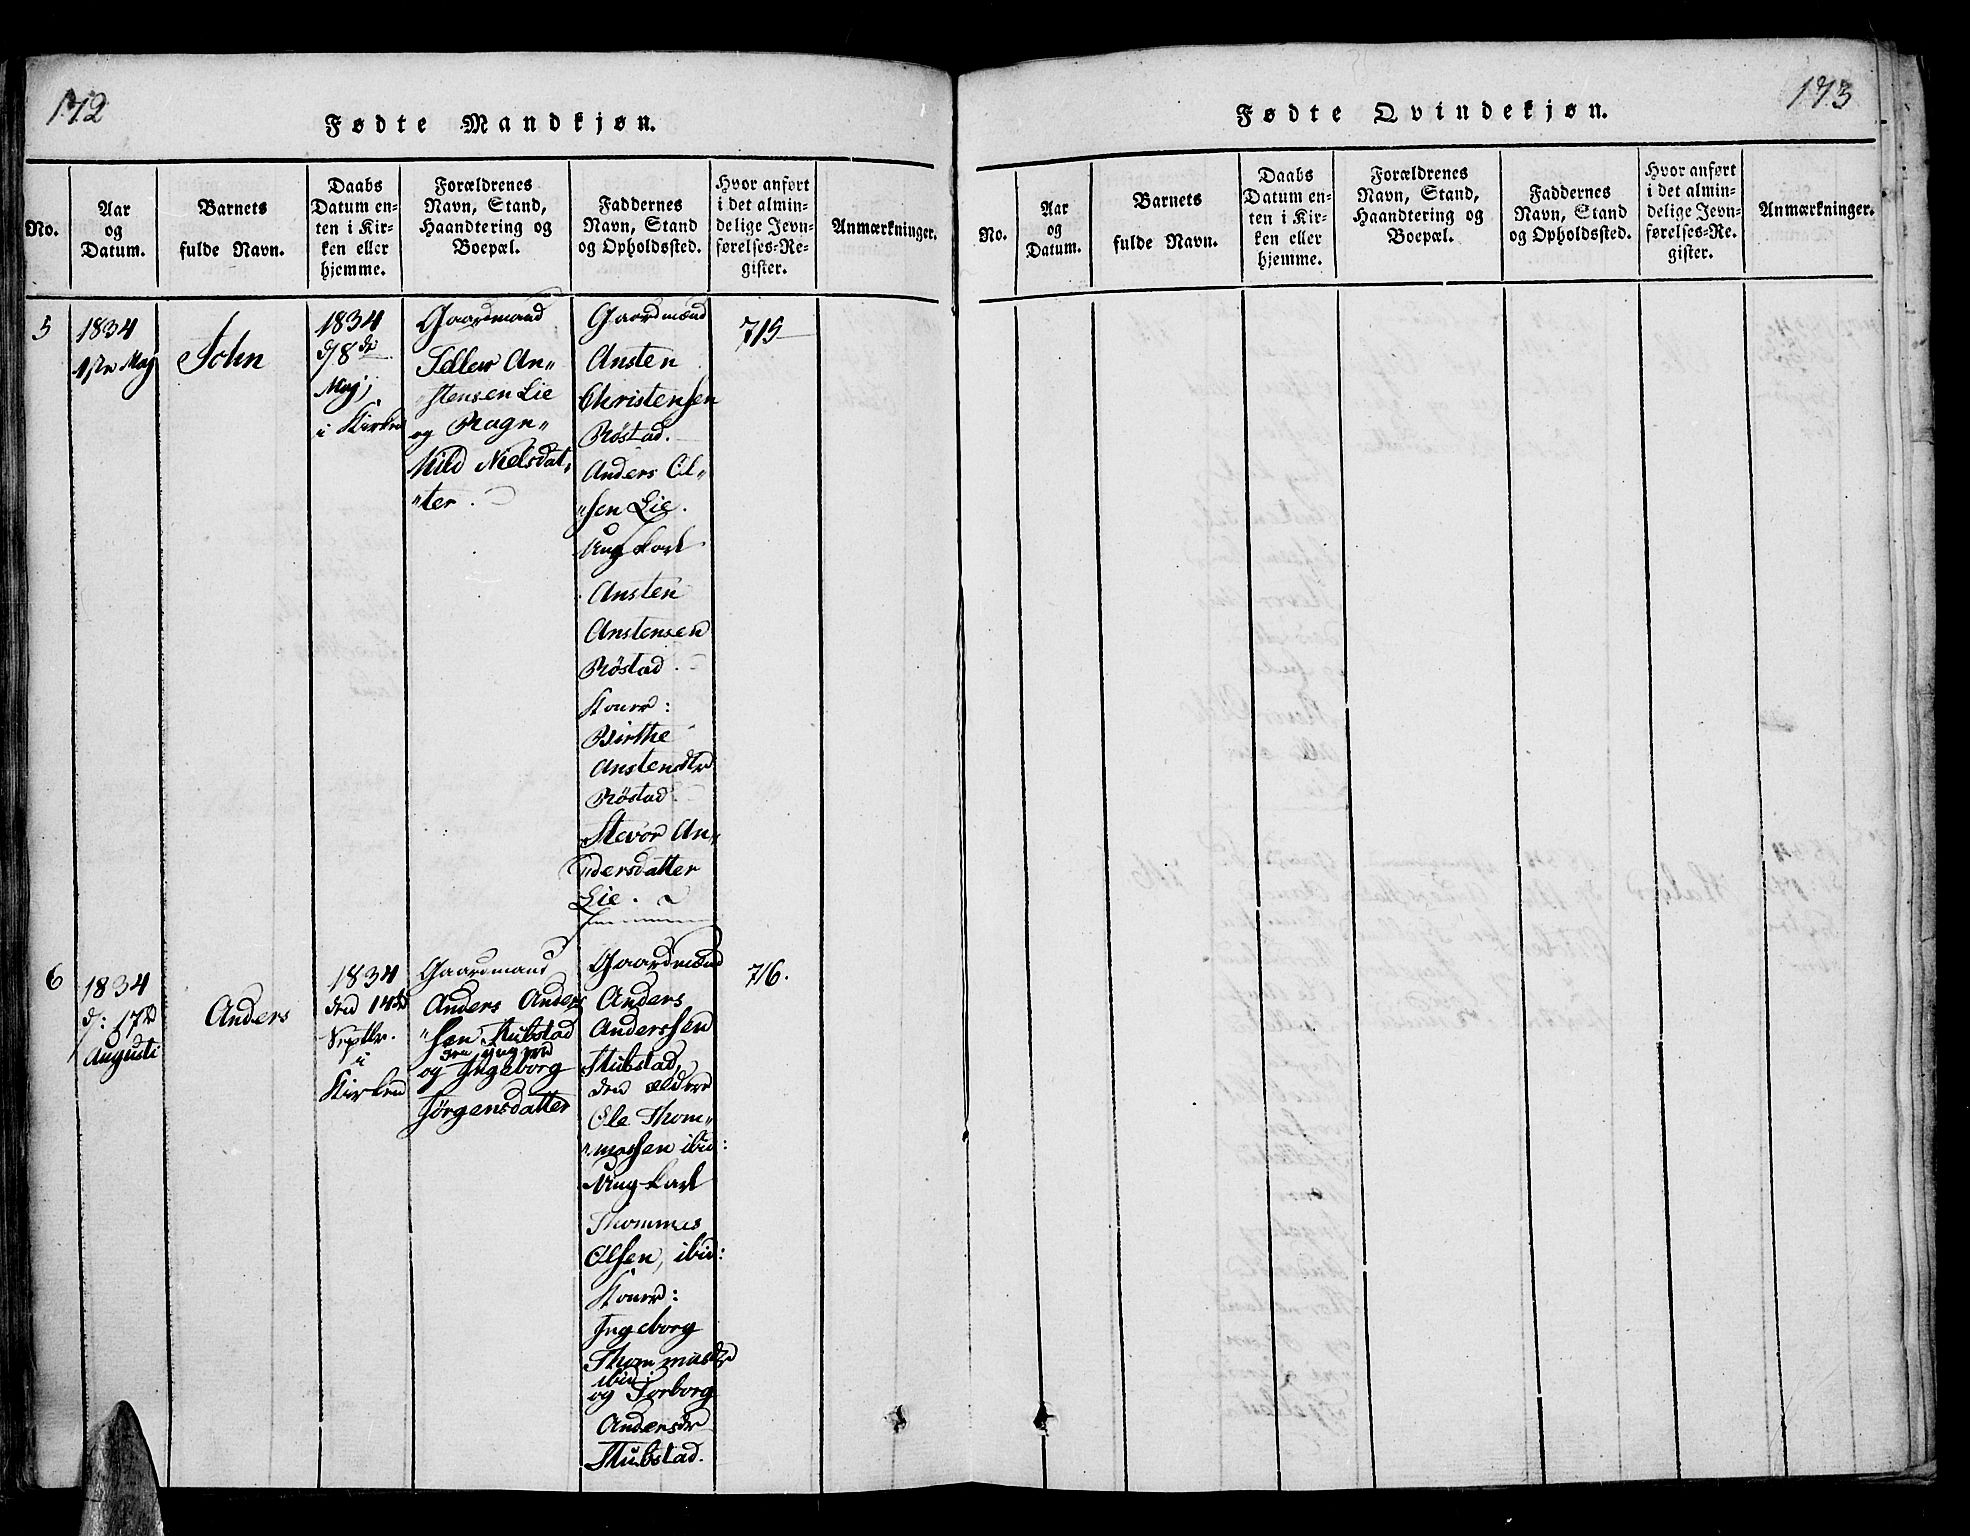 172
Fødte Mandkjøn.
No.
Aar
og
Datum.
Barnets
fulde Navn.
Daabs
Datum en-
ten i Kir-
ken eller
hjemme.
Forældrenes
Navn, Stand,
Haandtering og
Boepæl.
Faddernes
Navn, Stand
og Opholdssted.
Hvor anført
i det almin-
delige Jevn-
førelses-Re-
gister.
Anmærkninger.
5
1834
1ste Maj
John
1834
d/8de
Maj,
i Kirken
Gaardmand
Tellew An"
"stensen Lie
og Ragn"
hild Nielsdat"
"ter.
Gaardmænd
Ansten
Christensen
Røstad.
Anders Ol"
"sen Lie.
Ungkarl
Ansten
Anstensen
Røstad.
Koner:
Birthe
Anstensdtr
Røstad.
Stevor An"
"dersdatter
Lie.
715
6
1834
d: 17d
Augusti
Anders
1834
den 14de
Septbr.
i
Kirken
Gaardmand
Anders Anders
"sen Stubstad
den yngere
og Ingeborg
Jørgensdatter
Gaardmænd
Anders
Anderssen
Stubstad,
den ældere
Ole Thom"
"massen ibid:
Ungkarl
Thommes
Olsen, ibid:
Koner:
Ingeborg
Thommasdtr
ibid:
og Torborg
Andersdr
Stubstad.
716.
173
Fødte Qvindekjøn.
No.
Aar
og
Datum.
Barnets
fulde Navn.
Daabs
Datum en-
ten i Kir-
ken eller
hjemme.
Forældrenes
Navn, Stand,
Haandtering og
Boepæl.
Faddernes
Navn, Stand
og Opholdssted.
Hvor anført
i det almin-
delige Jevn-
førelses-Re-
gister.
Anmærkninger.